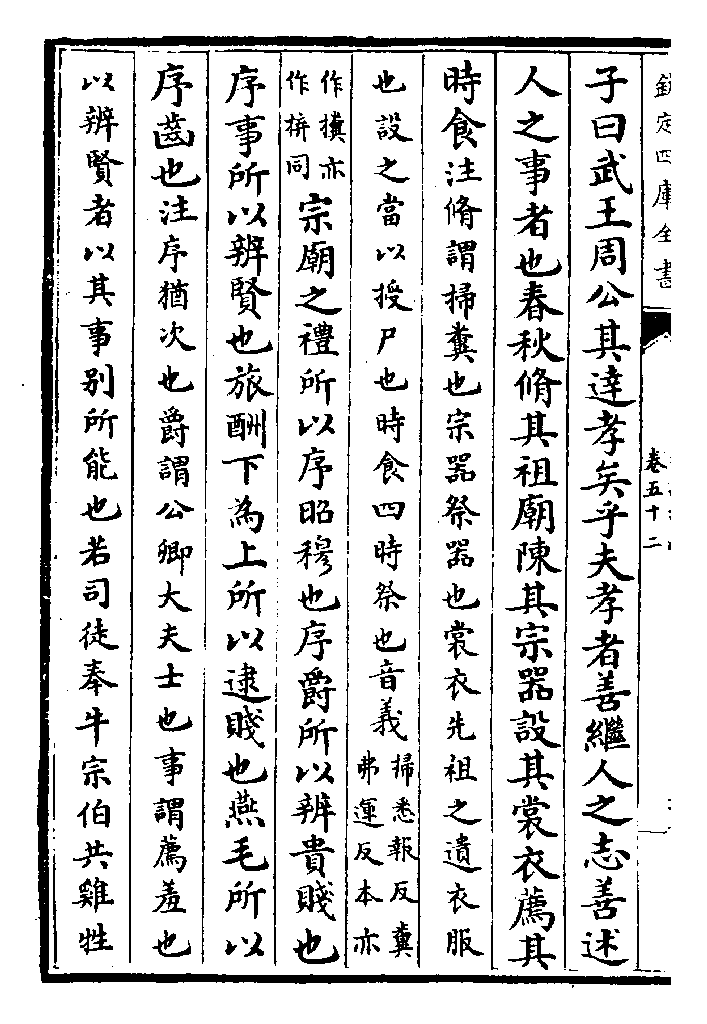 欽定四庫全書
卷五十二
子曰武王周公其達孝矣乎夫孝者善繼人之志善述
人之事者也春秋脩其祖廟陳其宗器設其裳衣薦其
時食注脩謂掃糞也宗器祭器也裳衣先祖之遺衣服
也設之當以授尸也時食四時祭也音義掃悉報反糞弗運反本亦
作㩥亦作拚同宗廟之禮所以序昭穆也序爵所以辨貴賤也
序事所以辨賢也旅酬下為上所以逮賤也燕毛所以
序齒也注序猶次也爵謂公卿大夫士也事謂薦羞也
以辨賢者以其事别所能也若司徒奉牛宗伯共雞牲